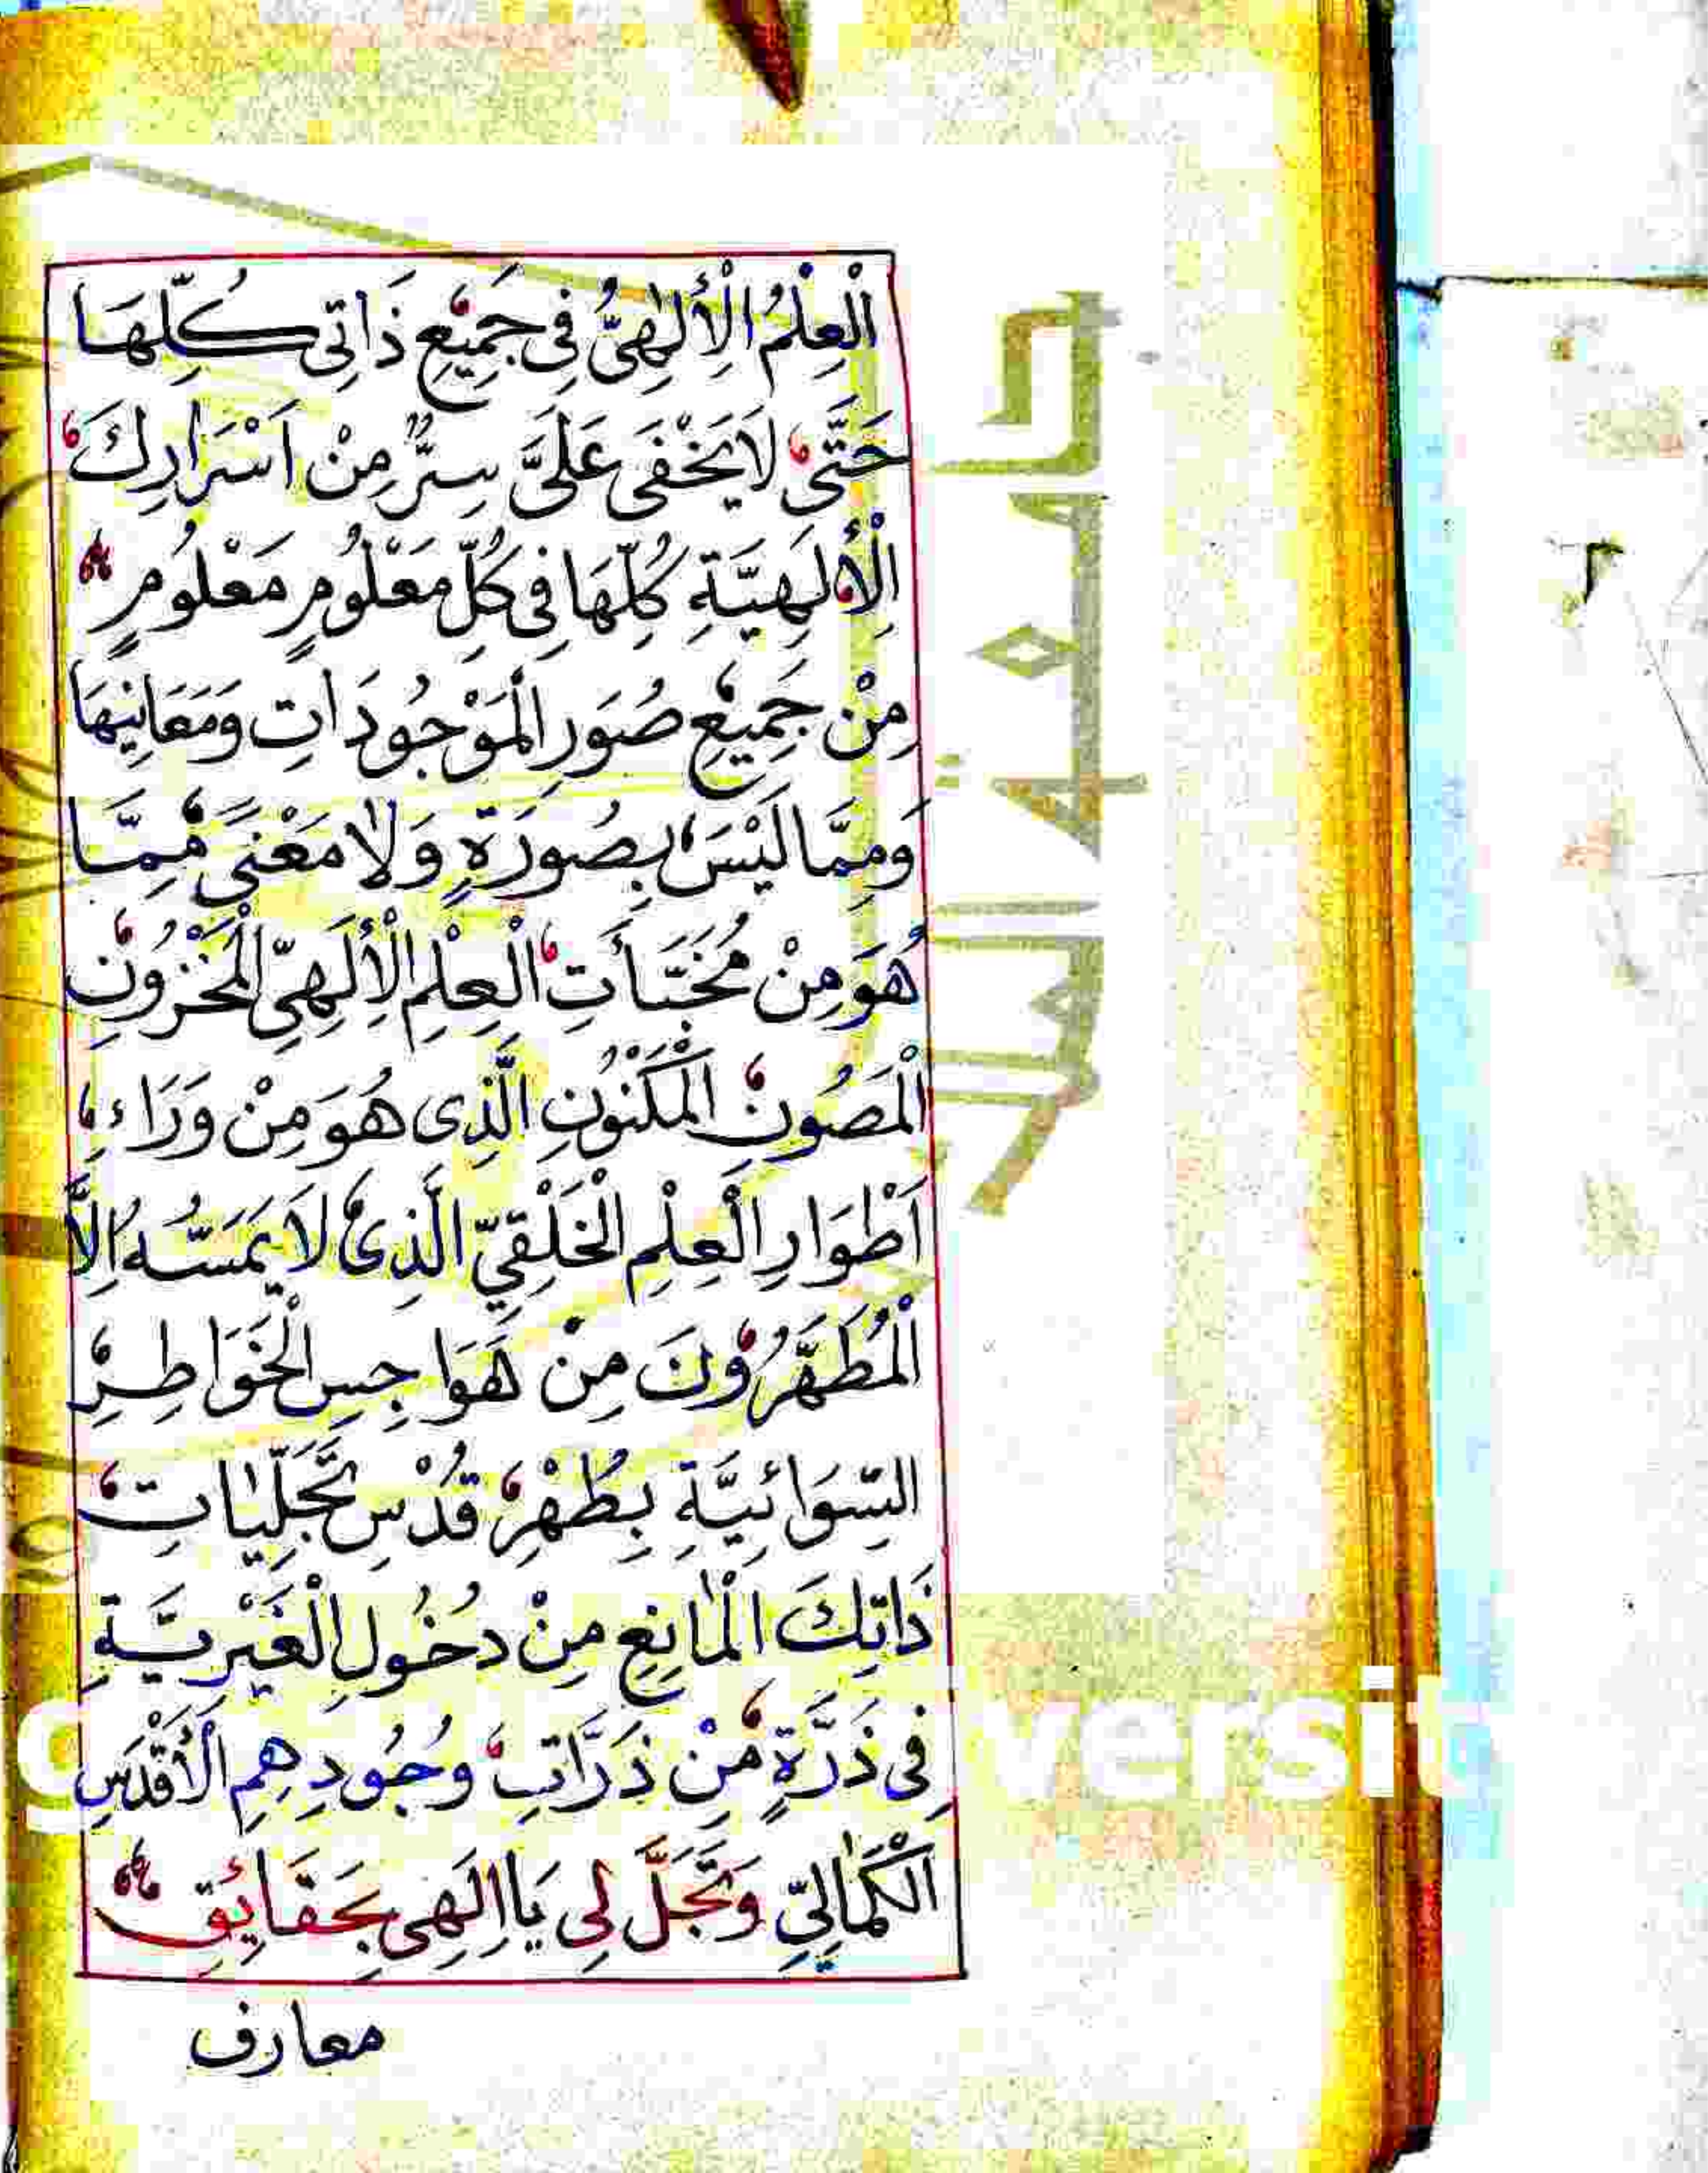 الْعِلْمُ الْاِلٰهِىُّ فِى جَمِيْعِ ذَاتِى كُلِّهَا
حَتَّى لَا يَخْفَى عَلَىَّ سِرٌّ مِنْ اَسْرَارِكَ
الْاِلَهِيَّةِ كُلِّهَا فِى كُلِّ مَعْلُومٍ مَعْلُومٍ
مِنْ جَمِيْعِ صُوَرِ الْمَوْجُودَاتِ وَمَعَانِيْهَا
وَمِمَّا لَيْسَ بِصُورَةٍ وَلَا مَعْنىً مِمَّا
هُوَ مِنْ مُخَبَّأَتِ الْعِلْمِ الْاِلَهِىِّ الْمَخْزُونِ
الْمَصُونِ الْمَكْنُوْنِ الَّذِى هُوَ مِنْ وَرَاءِ
اَطْوَارِ الْعِلْمِ الْخَلْقِىِّ الَّذِى لَا يَمَسُّهُ اِلَّا
الْمُطَهَّرُوْنَ مِنْ هَوَاجِسِ الْخَوَاطِرِ
السِّوَائِيَّةِ بِطُهْرِ قُدْسِ تَجَلِّيَاتِ
ذَاتِكَ الْمَانِعِ مِنْ دُخُولِ الْغَيْرِيَّةِ
فِى ذَرَّةٍ مِنْ ذَرَّاتِ وُجُودِهِمِ الْاَقْدَسِ
الْكَمَالِىِّ وَتَجَلَّ لِى يَا اِلَهِى بِحَقَايِقِ
معارف